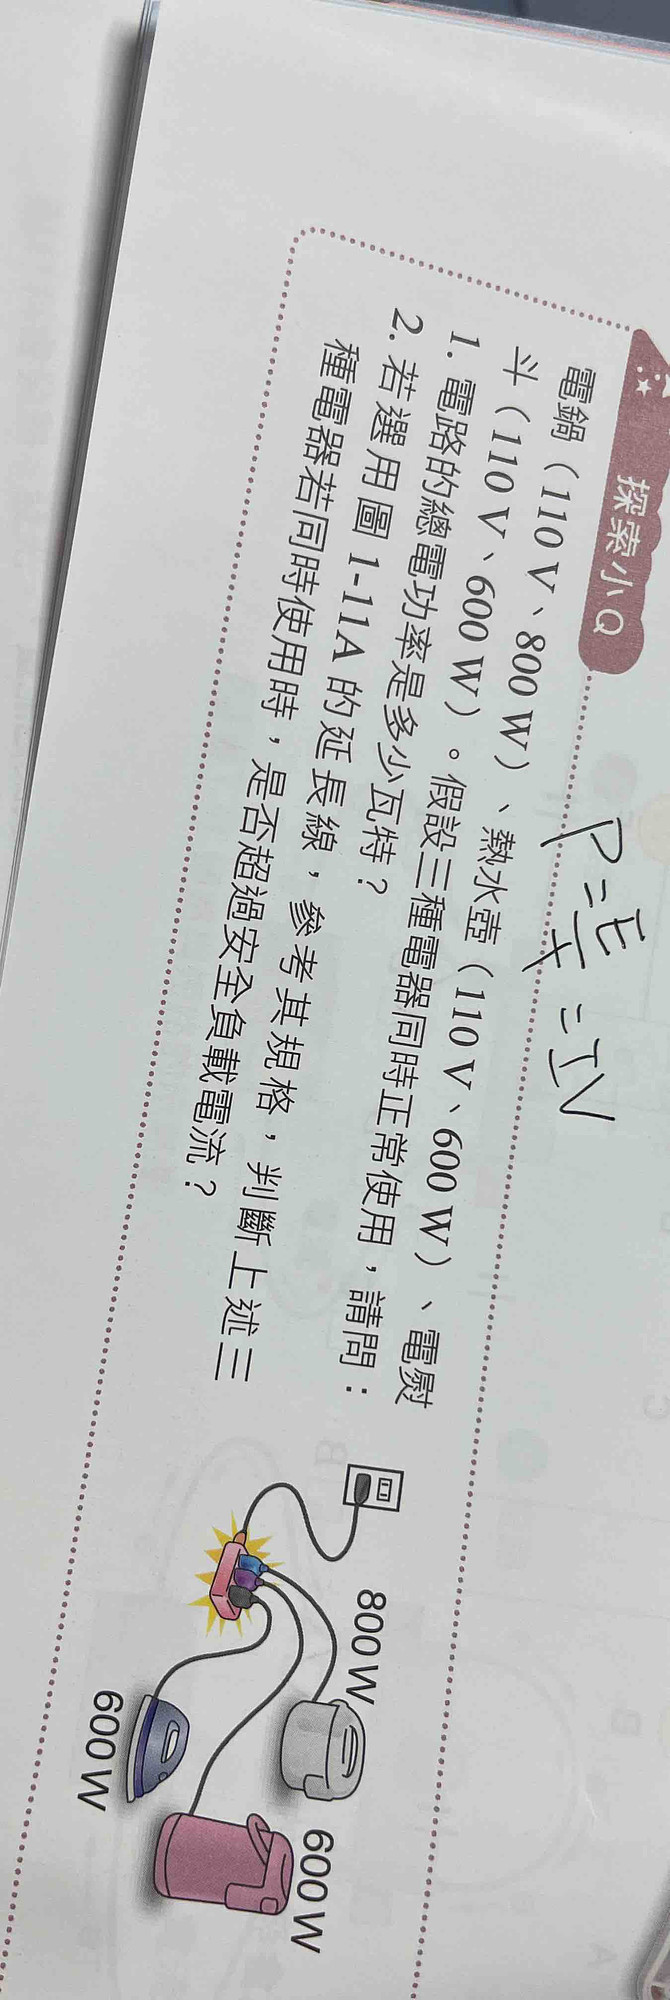 探索小Q
P=E/t=IV
電鍋（110 V、800 W）、熱水壺（110 V、600 W）、電熨
斗（110 V、600 W）。假設三種電器同時正常使用，請問：
1. 電路的總電功率是多少瓦特？
2. 若選用圖 1-11A 的延長線，參考其規格，判斷上述三
種電器若同時使用時，是否超過安全負載電流？
800 W
600 W
600 W